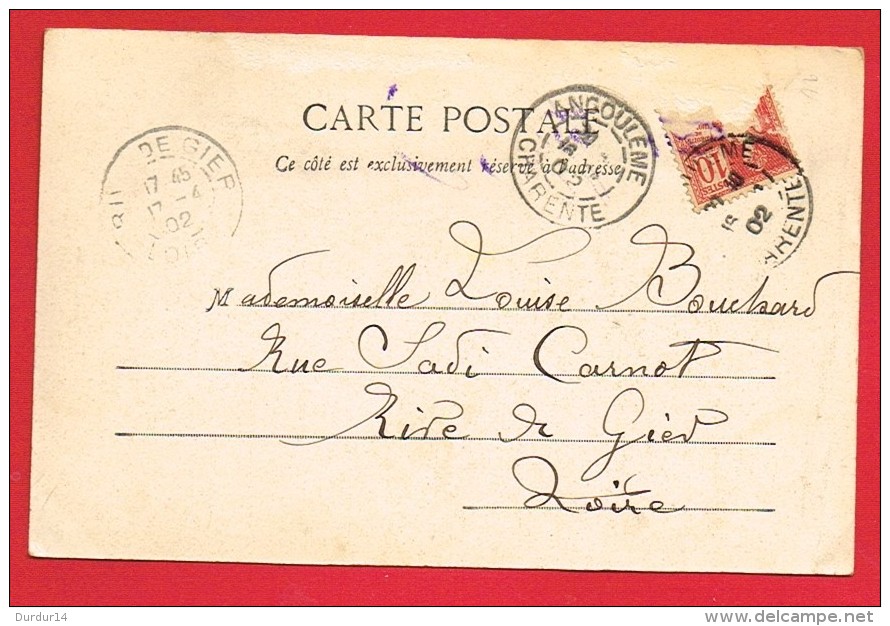 CARTE POSTALE
Ce côté est exclusivement réservé à l'adresse
ANGOULEME
CHARENTE
DE GIER
17 45
17 - 4
02
10
POSTES
EME
02
ARENTE
Mademoiselle Louise Bouchard
Rue Sadi Carnot
Rive de Gier
Loire
Durdur14
delcampe.net